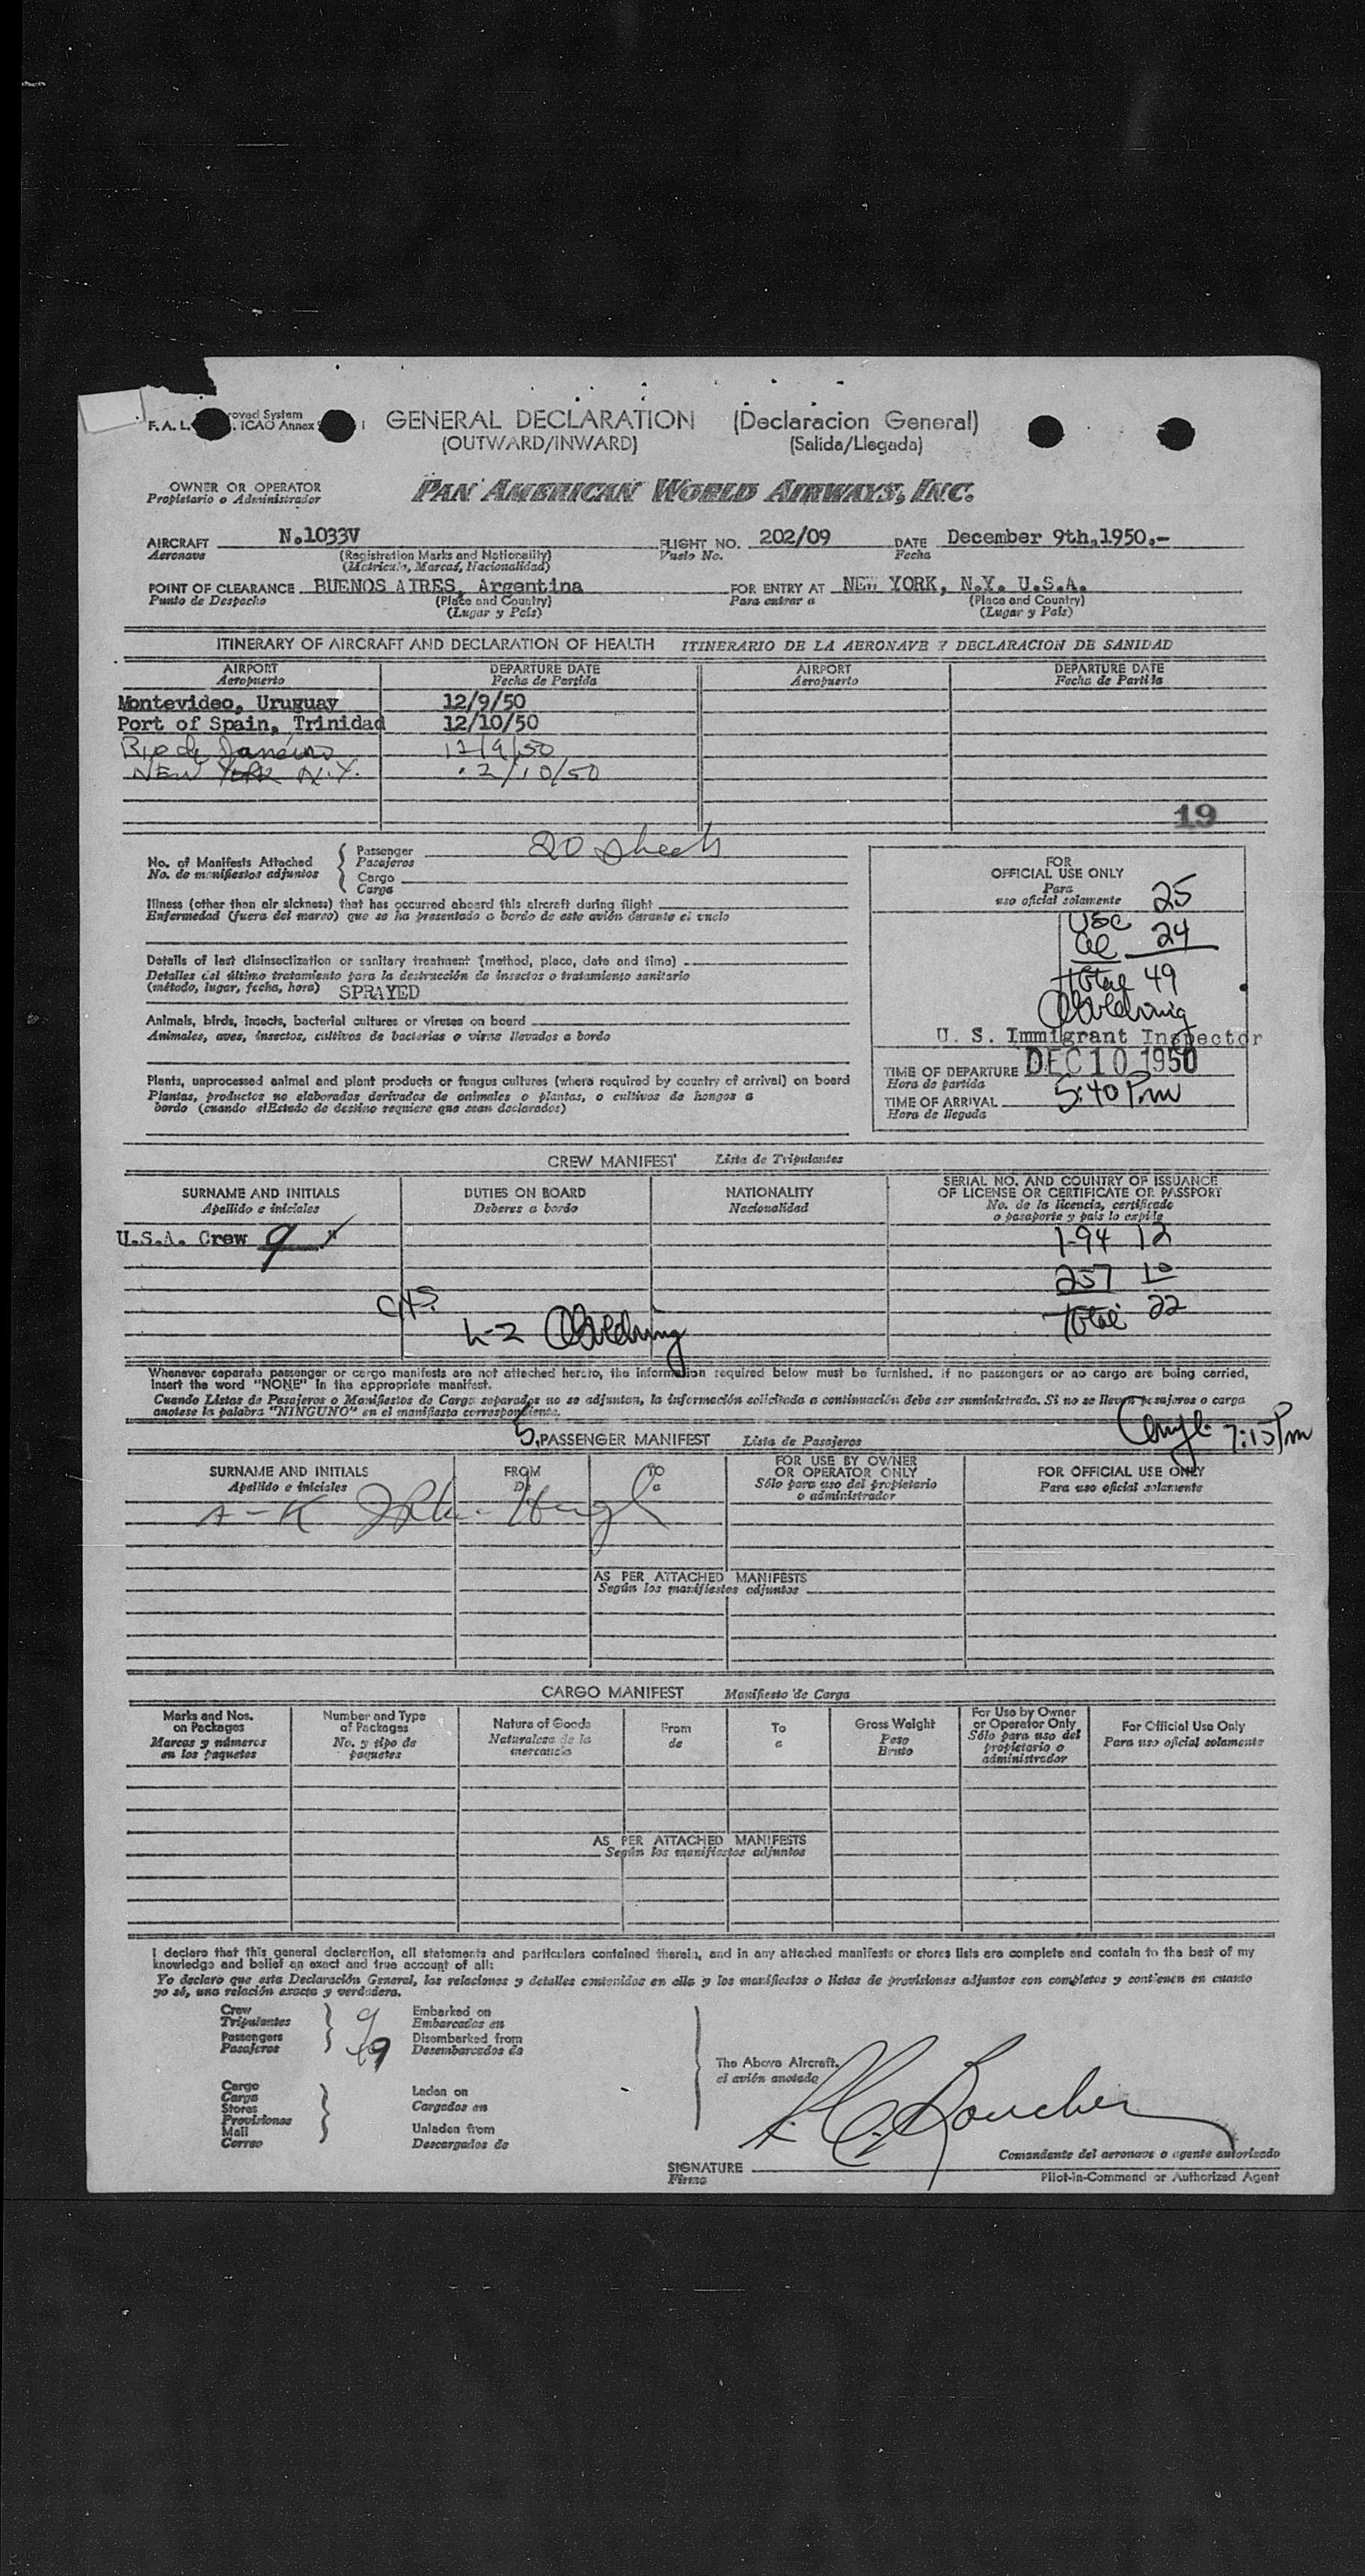 F. A. L. roved System
ICAO Annex
GENERAL DECLARATION (Declaracion General)
(OUTWARD/INWARD) (Salida/Llegada)
OWNER OR OPERATOR
Propietario o Administrador
PAN AMERICAN WORLD AIRWAYS, INC.
AIRCRAFT N.1033V FLIGHT NO. 202/09 DATE December 9th,1950.-
Aeronave (Registration Marks and Nationality) Vuelo No. Fecha
(Matricula, Marcas, Nacionalidad)
POINT OF CLEARANCE BUENOS AIRES, Argentina FOR ENTRY AT NEW YORK, N.Y. U.S.A.
Punto de Despacho (Place and Country) Para entrar a (Place and Country)
(Lugar y País) (Lugar y País)
ITINERARY OF AIRCRAFT AND DECLARATION OF HEALTH ITINERARIO DE LA AERONAVE Y DECLARACION DE SANIDAD
AIRPORT DEPARTURE DATE AIRPORT DEPARTURE DATE
Aeropuerto Fecha de Partida Aeropuerto Fecha de Partida
Montevideo, Uruguay 12/9/50
Port of Spain, Trinidad 12/10/50
Rio de Janeiro 12/9/50
NEW YORK N.Y. 12/10/50
19
No. of Manifests Attached
No. de manifiestos adjuntos
Passenger 20 sheets
Pasajeros
Cargo
Carga
Illness (other than air sickness) that has occurred aboard this aircraft during flight
Enfermedad (fuera del mareo) que se ha presentado a bordo de este avión durante el vuelo
Details of last disinsectization or sanitary treatment (method, place, date and time)
Detalles del último tratamiento para la destrucción de insectos o tratamiento sanitario
(método, lugar, fecha, hora) SPRAYED
Animals, birds, insects, bacterial cultures or viruses on board
Animales, aves, insectos, cultivos de bacterias o virus llevados a bordo
Plants, unprocessed animal and plant products or fungus cultures (where required by country of arrival) on board
Plantas, productos no elaborados derivados de animales o plantas, o cultivos de hongos a
bordo (cuando elEstado de destino requiere que sean declarados)
FOR
OFFICIAL USE ONLY
Para
uso oficial solamente
USC 25
al 24
total 49
U. S. Immigrant Inspector
DEC 10 1950
TIME OF DEPARTURE
Hora de partida
TIME OF ARRIVAL 5:40 Pm
Hora de llegada
CREW MANIFEST Lista de Tripulantes
SURNAME AND INITIALS DUTIES ON BOARD NATIONALITY SERIAL NO. AND COUNTRY OF ISSUANCE
OF LICENSE OR CERTIFICATE OR PASSPORT
Apellido e iniciales Deberes a bordo Nacionalidad No. de la licencia, certificado
o pasaporte y país lo expide
U.S.A. Crew 9 I-94 12
257 10
Total 22
L-2
Whenever separate passenger or cargo manifests are not attached hereto, the information required below must be furnished. If no passengers or no cargo are being carried,
insert the word "NONE" in the appropriate manifest.
Cuando Listas de Pasajeros o Manifiestos de Carga separados no se adjuntan, la información solicitada a continuación debe ser suministrada. Si no se llevan pasajeros o carga
anotese la palabra "NINGUNO" en el manifiesto correspondiente.
7:15 Pm
5. PASSENGER MANIFEST Lista de Pasajeros
SURNAME AND INITIALS FROM TO FOR USE BY OWNER
OR OPERATOR ONLY FOR OFFICIAL USE ONLY
Apellido e iniciales De a Sólo para uso del propietario
o administrador Para uso oficial solamente
A-K
AS PER ATTACHED MANIFESTS
Según los manifiestos adjuntos
CARGO MANIFEST Manifiesto de Carga
Marks and Nos.
on Packages
Marcas y números
en los paquetes
Number and Type
of Packages
No. y tipo de
paquetes
Nature of Goods
Naturaleza de la
mercancía
From
de
To
a
Gross Weight
Peso
Bruto
For Use by Owner
or Operator Only
Sólo para uso del
propietario o
administrador
For Official Use Only
Para uso oficial solamente
AS PER ATTACHED MANIFESTS
Según los manifiestos adjuntos
I declare that this general declaration, all statements and particulars contained therein, and in any attached manifests or stores lists are complete and contain to the best of my
knowledge and belief an exact and true account of all:
Yo declaro que esta Declaración General, las relaciones y detalles contenidos en ella y los manifiestos o listas de provisiones adjuntos son completos y contienen en cuanto
yo sé, una relación exacta y verdadera.
Crew
Tripulantes 9
Passengers
Pasajeros 49
Embarked on
Embarcados en
Disembarked from
Desembarcados de
Cargo
Carga
Stores
Provisiones
Mail
Correo
Laden on
Cargados en
Unladen from
Descargados de
The Above Aircraft.
el avión anotado
Boucher
Comandante del aeronave o agente autorizado
SIGNATURE
Firma
Pilot-in-Command or Authorized Agent